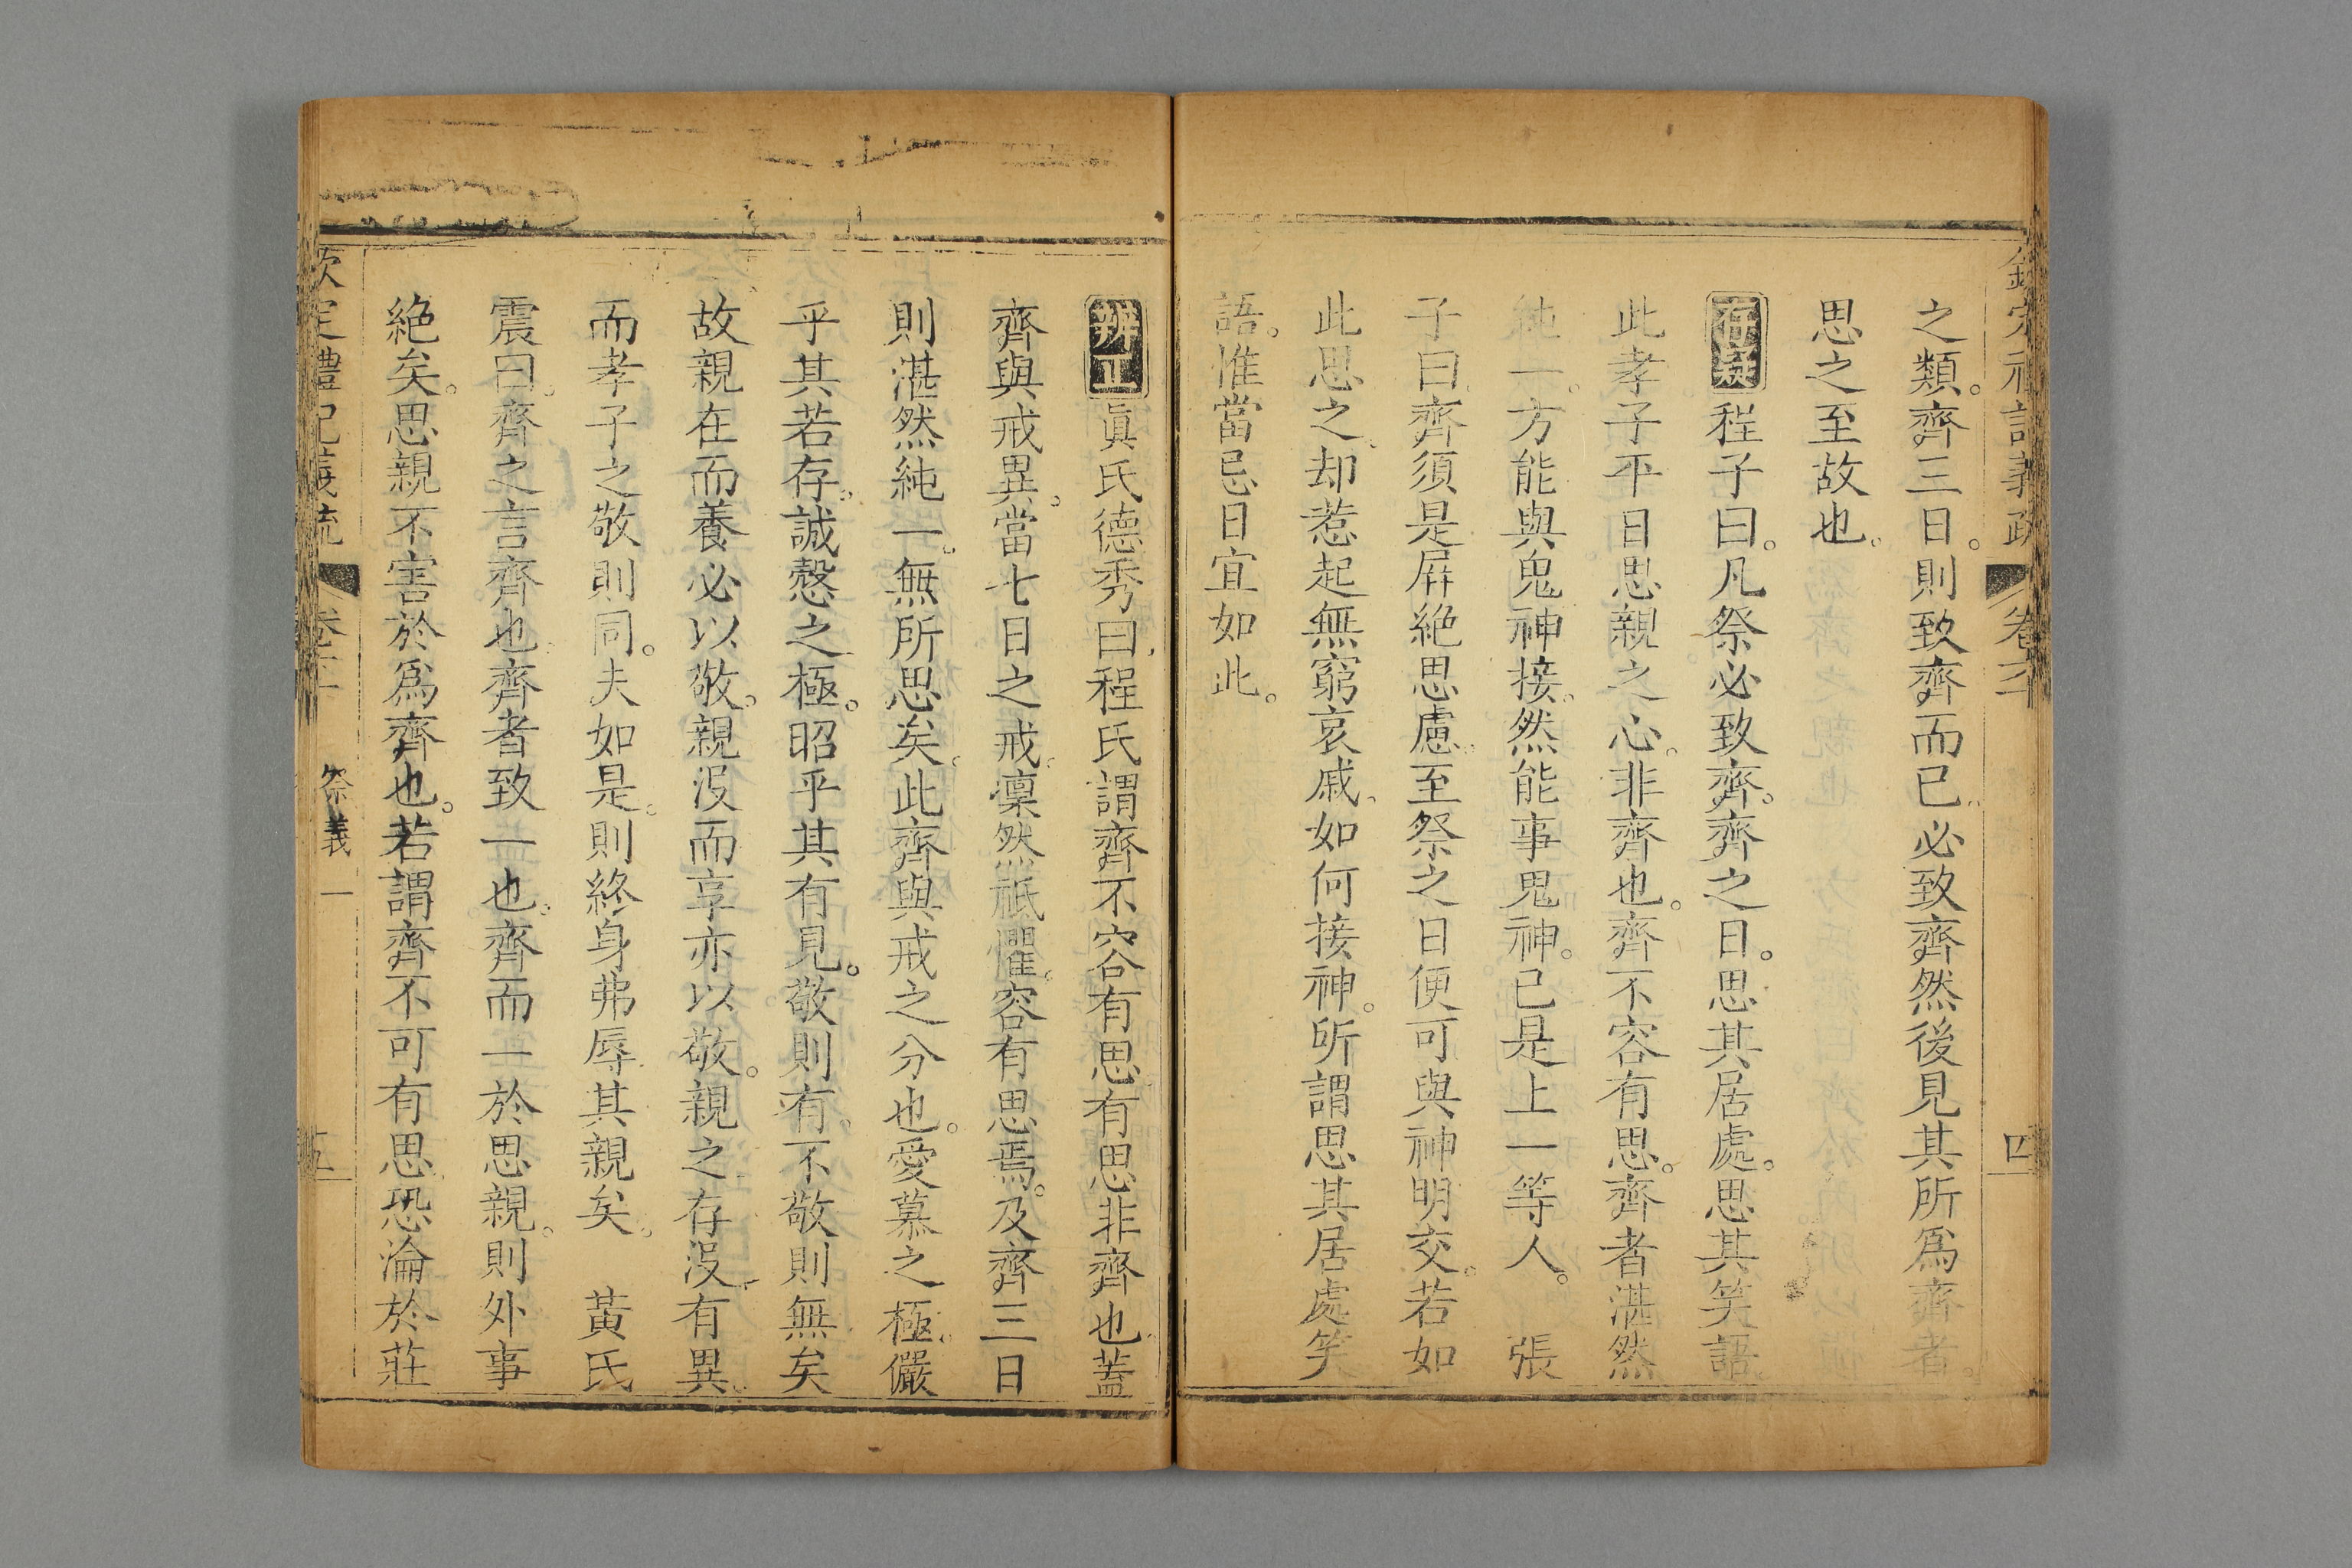 之類。齊三日。則致齊而已。必致齊然後見其所爲齊者。
思之至故也。
存疑程子曰。凡祭必致齊。齊之日。思其居處。思其笑語。
此孝子平日思親之心。非齊也。齊不容有思。齊者湛然
純一。方能與鬼神接。然能事鬼神。已是上一等人。　張
子曰。齊須是屏絶思慮。至祭之日便可與神明交。若如
此思之。却惹起無窮哀戚。如何接神。所謂思其居處笑
語。惟當忌日宜如此。
辨正眞氏德秀曰。程氏謂齊不容有思有思非齊也。蓋
齊與戒異。當七日之戒。凛然祇懼。容有思焉。及齊三日
則湛然純一。無所思矣。此齊與戒之分也。愛慕之極。儼
乎其若存。誠慤之極。昭乎其有見。敬則有。不敬則無矣
故親在而養必以敬。親沒而享亦以敬。親之存沒。有異。
而孝子之敬則同。夫如是。則終身弗辱其親矣。　黄氏
震曰。齊之言齊也。齊者致一也。齊而一於思親。則外事
絶矣。思親不害於爲齊也。若謂齊不可有思恐淪於莊
欽定禮記義疏　卷六十　祭義一　五